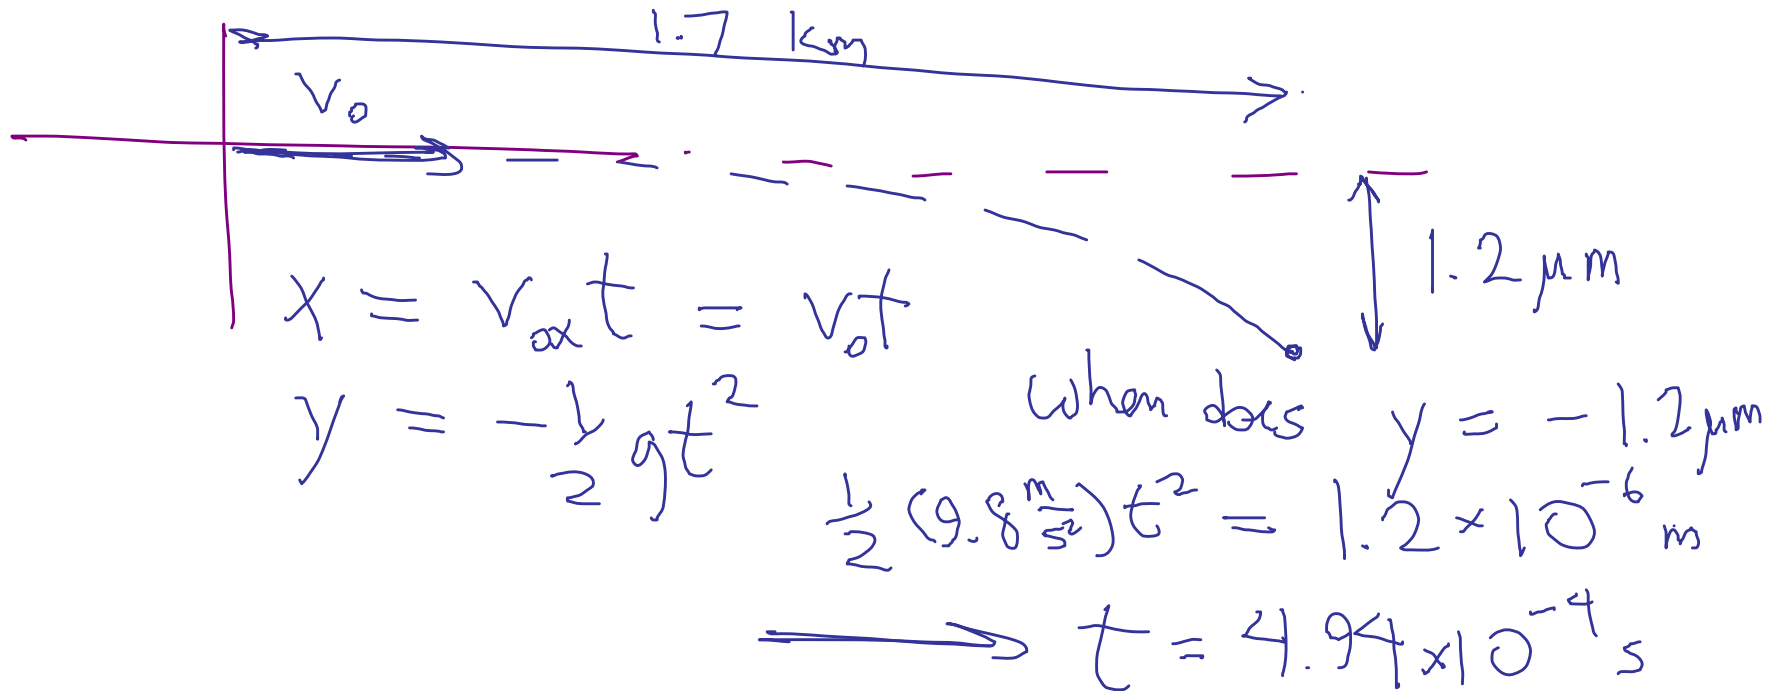 1.7 km
v₀
1.2 μm
x = v₀ₓt = v₀t
y = -½gt²
when does y = -1.2 μm
½(9.8 m/s²)t² = 1.2 × 10⁻⁶ m
t = 4.94 × 10⁻⁴ s